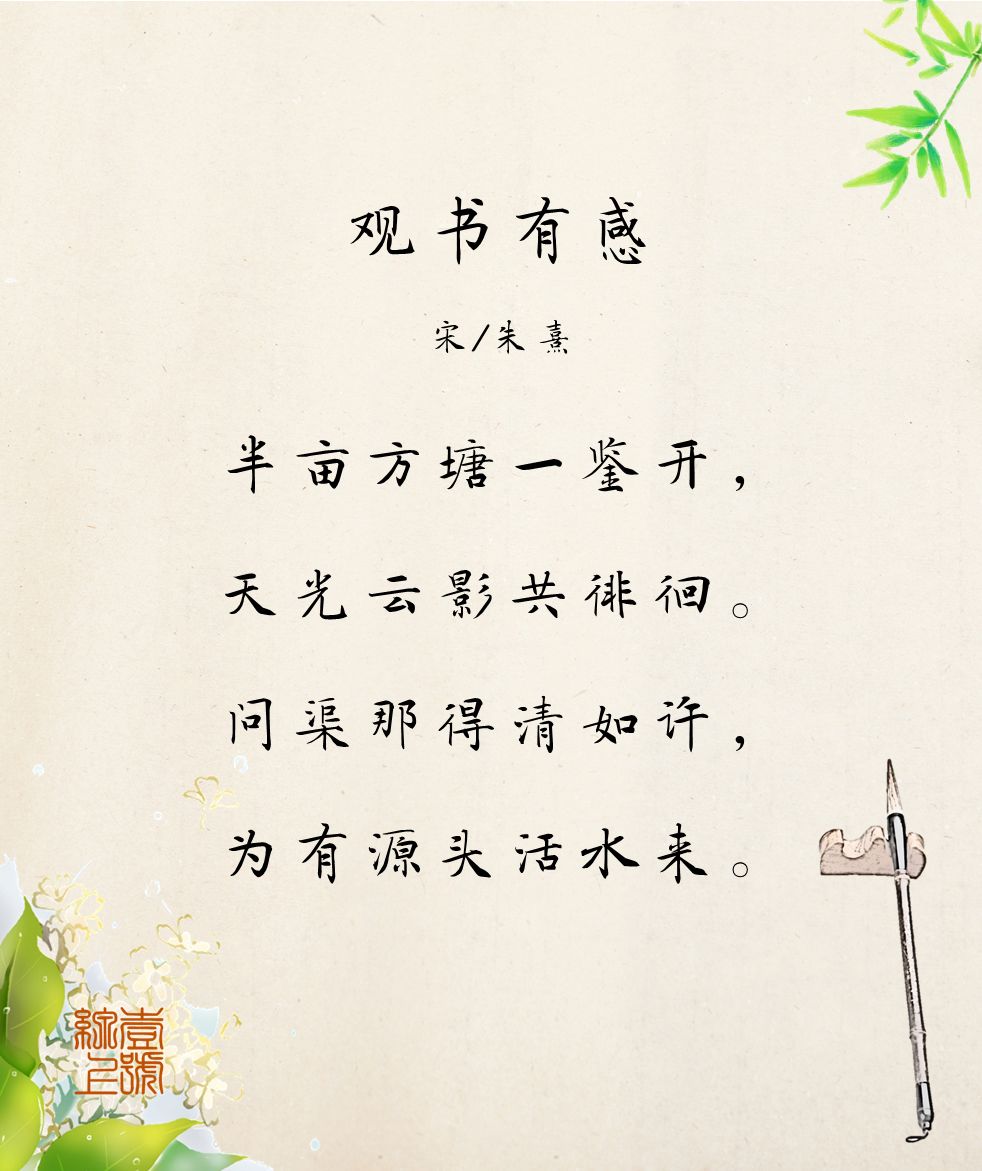 观书有感
宋/朱熹
半亩方塘一鉴开，
天光云影共徘徊。
问渠那得清如许，
为有源头活水来。